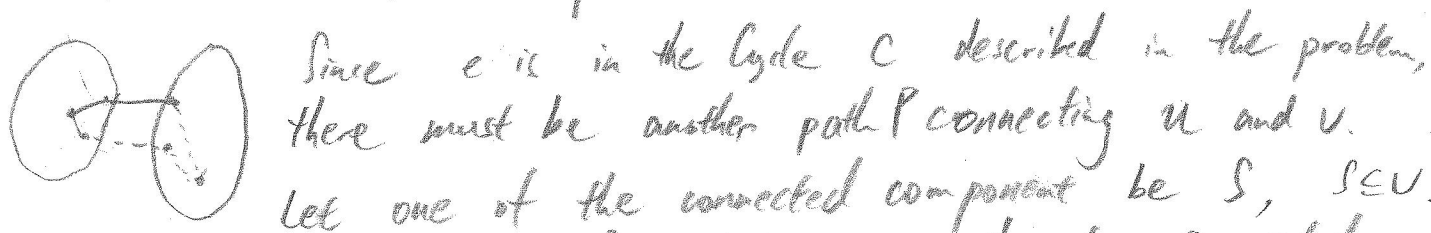 Since e is in the Cycle C described in the problem,
there must be another path P connecting u and v.
Let one of the connected component be S, S⊆V.